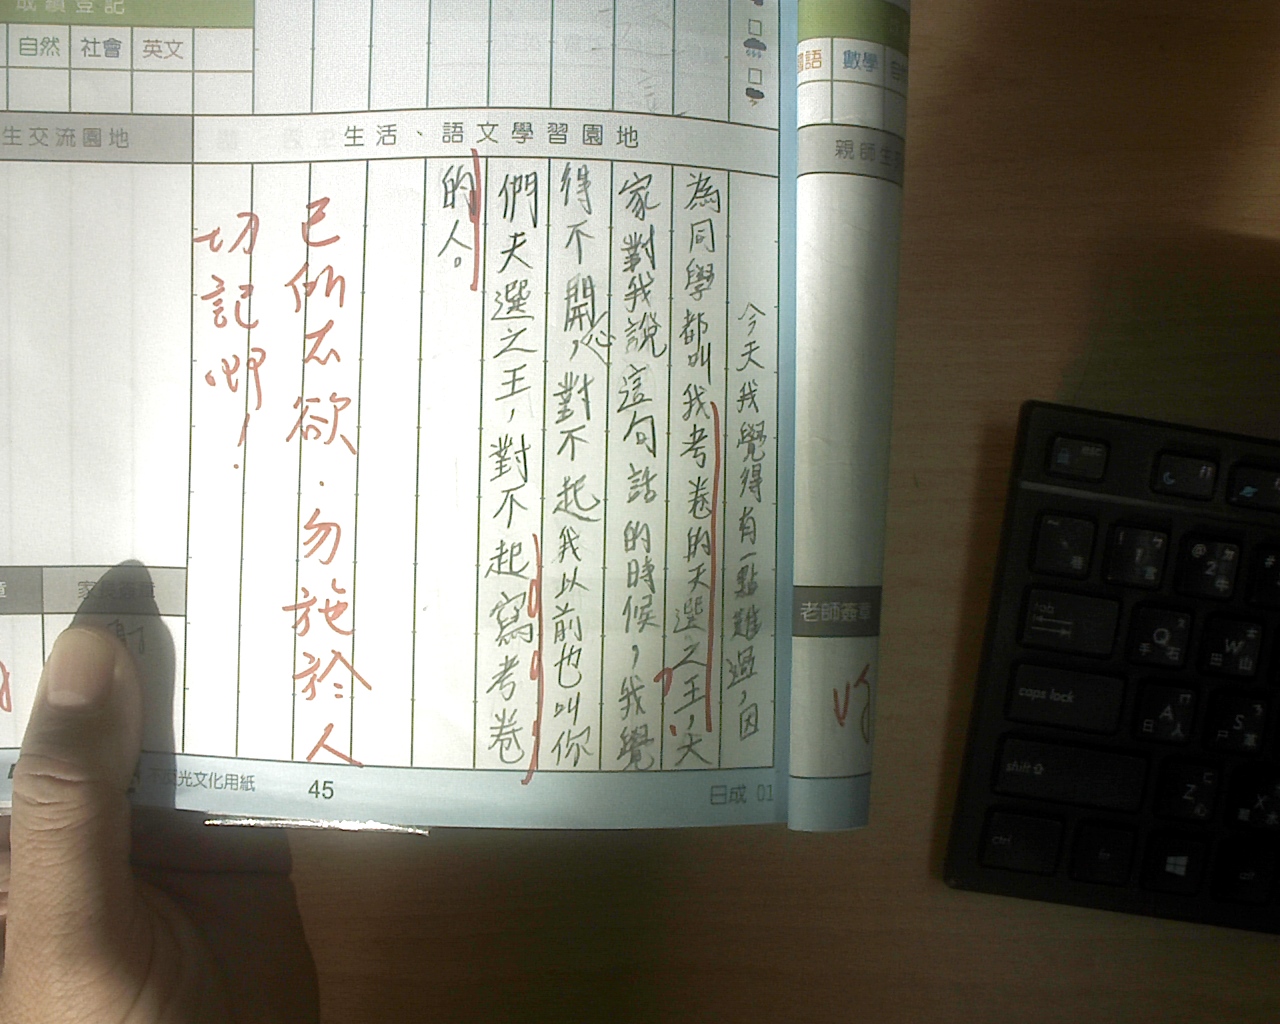 成績登記
自然 社會 英文
國語 數學 自
生交流園地
生活、語文學習園地
親師生
今天我覺得有一點難過,因
為同學都叫我考卷的天選之王,大
家對我說這句話的時候,我覺
得不開心,對不起我以前也叫你
們天選之王,對不起寫考卷
的人。
己所不欲.勿施於人
切記啊!
老師簽章
光文化用紙
45
日成 01
esc
F1
tab
Q
手 石
W
田 山
caps lock
A
日 人
S
尸 革
shift
Z
X
ctrl